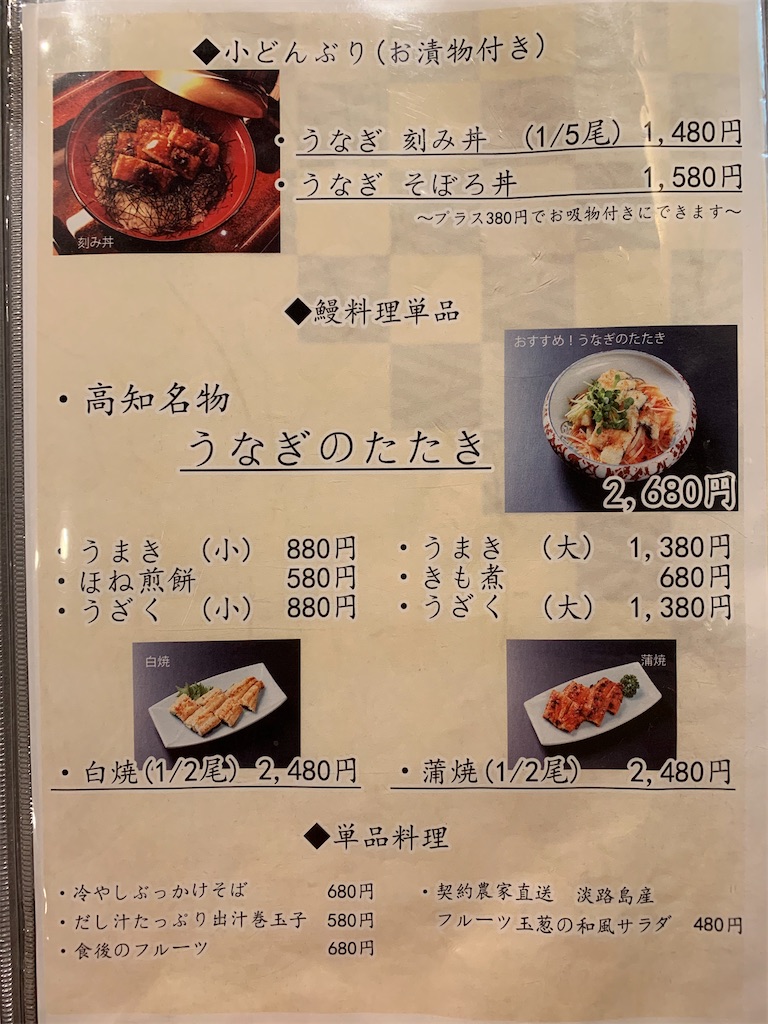 ◆小どんぶり(お漬物付き)
・うなぎ 刻み丼 (1/5尾) 1,480円
・うなぎ そぼろ丼 1,580円
～プラス380円でお吸物付きにできます～
刻み丼
◆鰻料理単品
おすすめ！うなぎのたたき
・高知名物
うなぎのたたき
2,680円
・うまき (小) 880円 ・うまき (大) 1,380円
・ほね煎餅 580円 ・きも煮 680円
・うざく (小) 880円 ・うざく (大) 1,380円
白焼 蒲焼
・白焼(1/2尾) 2,480円 ・蒲焼(1/2尾) 2,480円
◆単品料理
・冷やしぶっかけそば 680円
・だし汁たっぷり出汁巻玉子 580円
・食後のフルーツ 680円
・契約農家直送 淡路島産
フルーツ玉葱の和風サラダ 480円